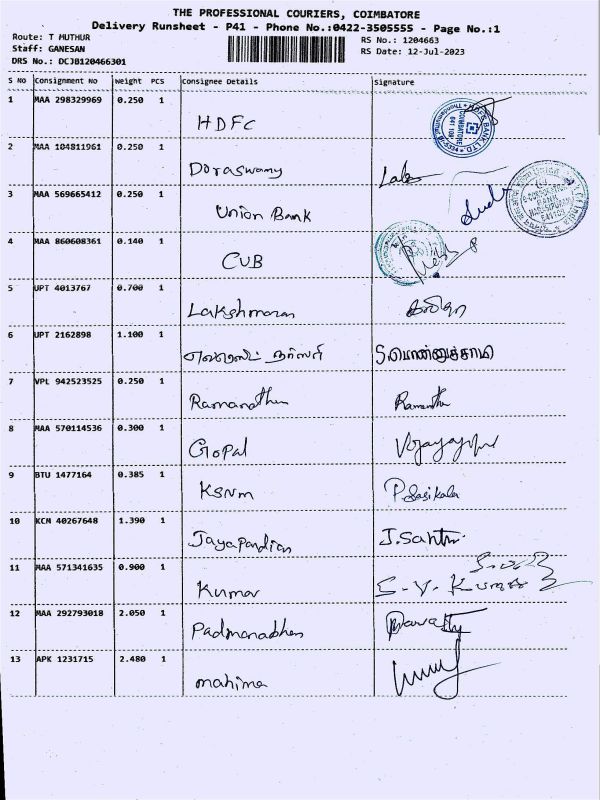 THE PROFESSIONAL COURIERS, COIMBATORE
Delivery Runsheet - P41 - Phone No.:0422-3505555 - Page No.:1
Route: T MUTHUR
RS No.: 1204663
Staff: GANESAN
RS Date: 12-Jul-2023
DRS No.: DCJB120466301
S NO Consignment No Weight PCS Consignee Details Signature
1 MAA 298329969 0.250 1 HDFC
2 MAA 104811961 0.250 1 Doraswamy
3 MAA 569665412 0.250 1 Union Bank
4 MAA 860608361 0.140 1 CUB
5 UPT 4013767 0.700 1 Lakshmanan
6 UPT 2162898 1.100 1 S.பொன்னுச்சாமி
7 VPL 942523525 0.250 1 Ramanathan
8 MAA 570114536 0.300 1 Gopal
9 BTU 1477164 0.385 1 KSNM P.Sasikala
10 KCM 40267648 1.390 1 Jayapandian
11 MAA 571341635 0.900 1 Kumar S.V. Kumar
12 MAA 292793018 2.050 1 Padmanabhan
13 APK 1231715 2.480 1 mahima